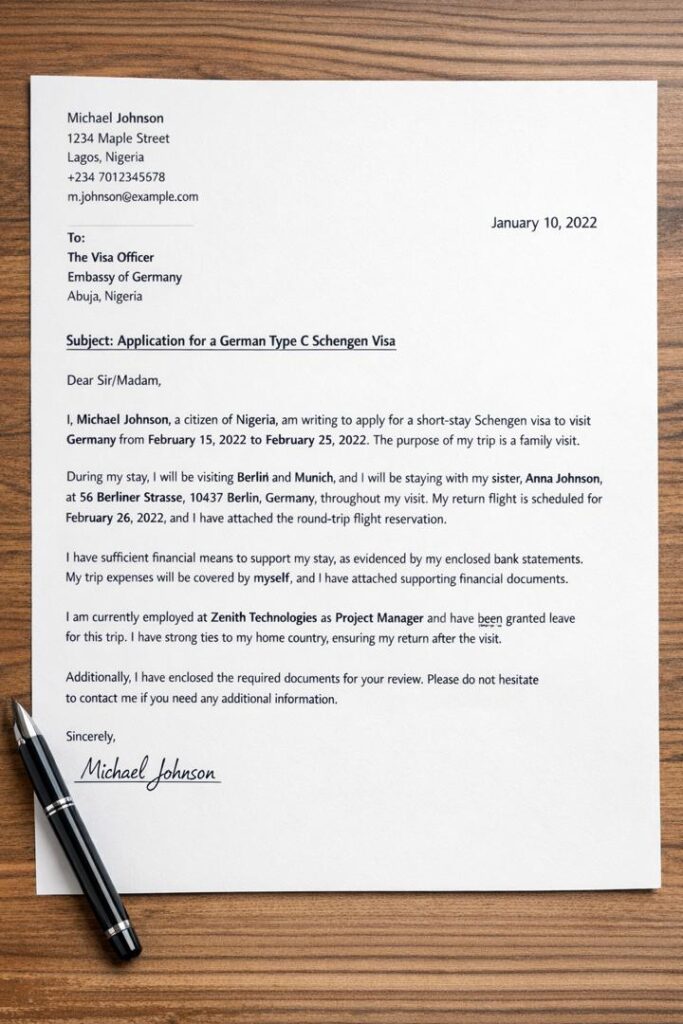 Michael Johnson
1234 Maple Street
Lagos, Nigeria
+234 7012345678
m.johnson@example.com
January 10, 2022
To:
The Visa Officer
Embassy of Germany
Abuja, Nigeria
Subject: Application for a German Type C Schengen Visa
Dear Sir/Madam,
I, Michael Johnson, a citizen of Nigeria, am writing to apply for a short-stay Schengen visa to visit
Germany from February 15, 2022 to February 25, 2022. The purpose of my trip is a family visit.
During my stay, I will be visiting Berlin and Munich, and I will be staying with my sister, Anna Johnson,
at 56 Berliner Strasse, 10437 Berlin, Germany, throughout my visit. My return flight is scheduled for
February 26, 2022, and I have attached the round-trip flight reservation.
I have sufficient financial means to support my stay, as evidenced by my enclosed bank statements.
My trip expenses will be covered by myself, and I have attached supporting financial documents.
I am currently employed at Zenith Technologies as Project Manager and have been granted leave
for this trip. I have strong ties to my home country, ensuring my return after the visit.
Additionally, I have enclosed the required documents for your review. Please do not hesitate
to contact me if you need any additional information.
Sincerely,
Michael Johnson